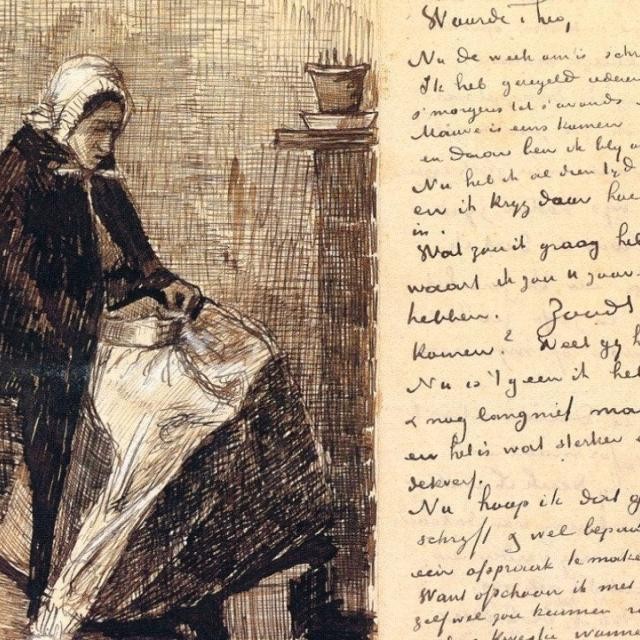 Waarde Theo,
Nu de week om is schr
Ik heb geregeld iedere
s'morgens tot s'avonds
Mauve is eens komen
en daar ben ik blij
Nu heb ik al dien tijd
en ik kryg daar hoe
in.
Wat zou ik graag heb
want ik zou u gaar
hebben. Zoudt
komen? Weet gy h
Nu is 't geen ik heb
& nog lang niet mo
en het is wat sterker
dekverf.
Nu hoop ik dat g
schryft & wel bepaa
een afspraak te make
Want ofschoon ik met
zeer wel zou kunnen